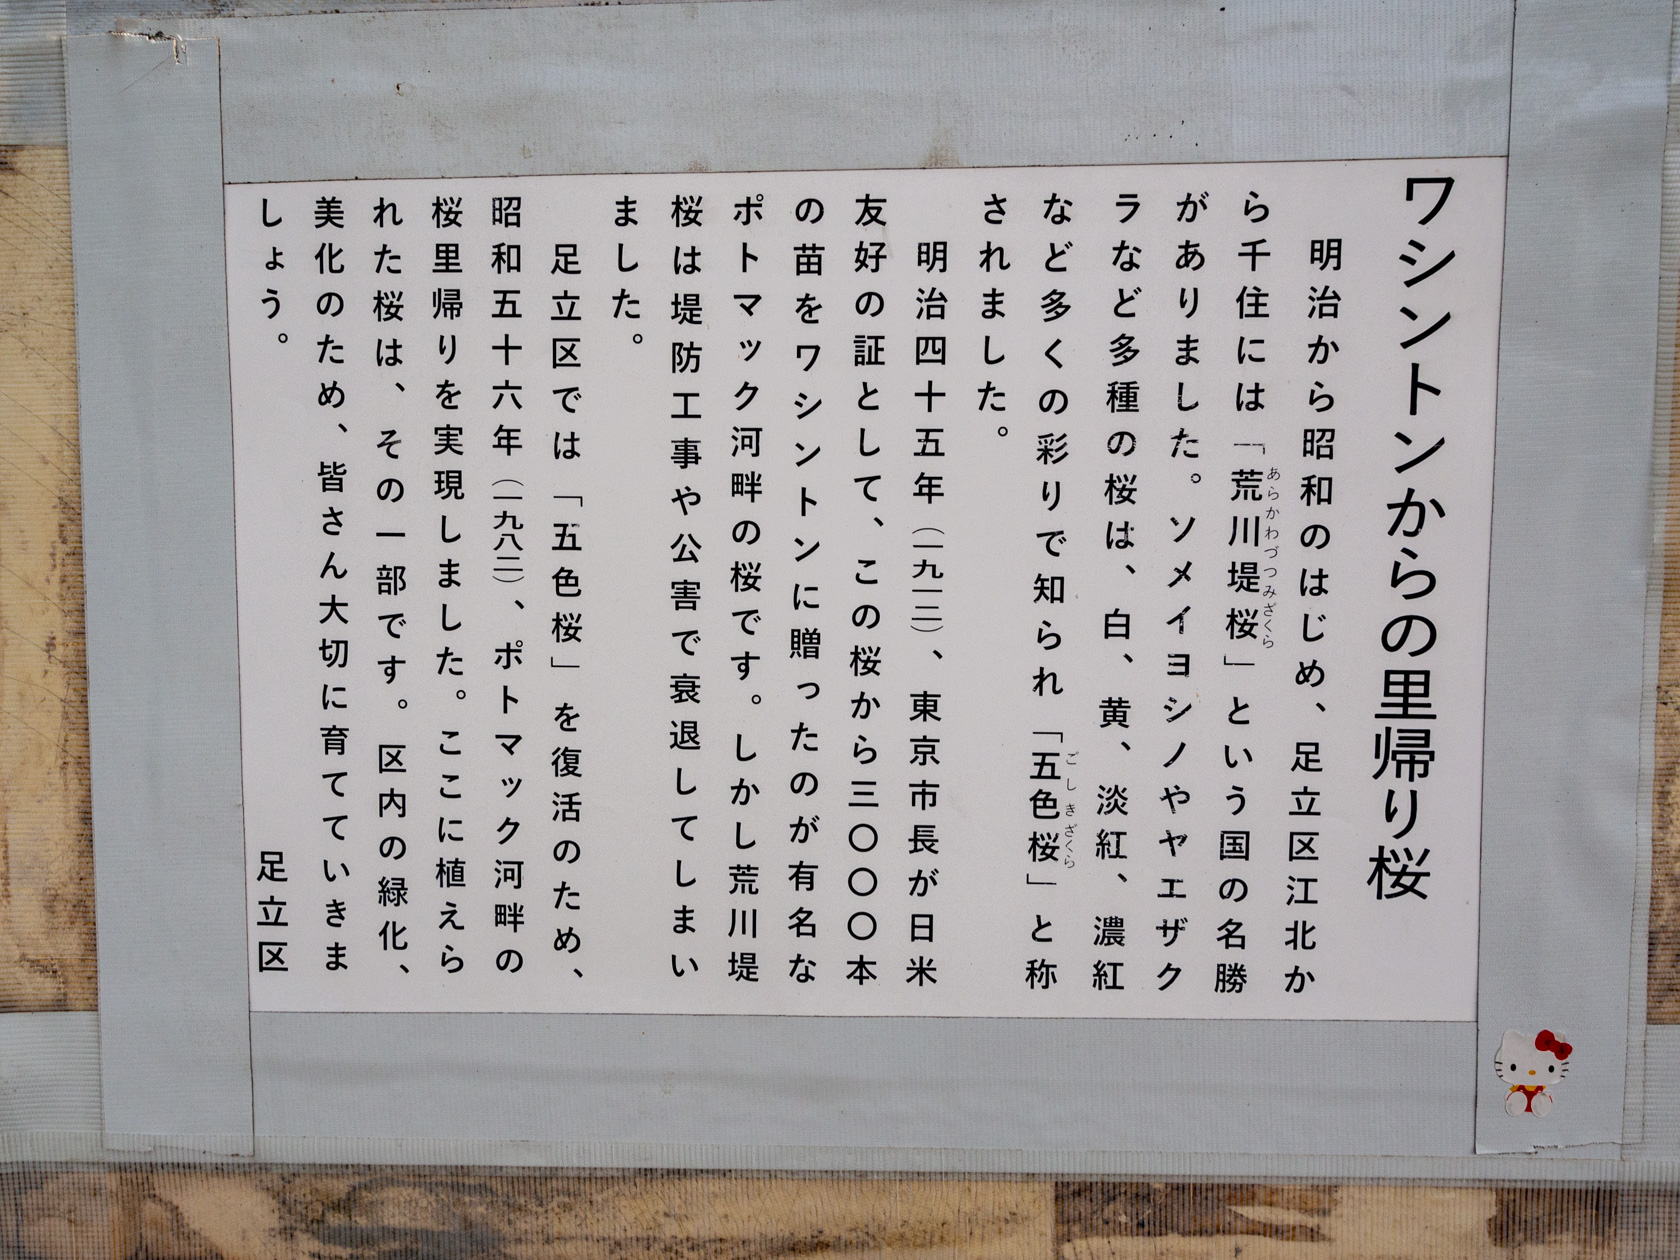 ワシントンからの里帰り桜
明治から昭和のはじめ、足立区江北か
ら千住には「荒川堤桜」という国の名勝
あらかわづつみざくら
がありました。ソメイヨシノやヤエザク
ラなど多種の桜は、白、黄、淡紅、濃紅
など多くの彩りで知られ「五色桜」と称
ごしきざくら
されました。
明治四十五年（一九一二）、東京市長が日米
友好の証として、この桜から三〇〇〇本
の苗をワシントンに贈ったのが有名な
ポトマック河畔の桜です。しかし荒川堤
桜は堤防工事や公害で衰退してしまい
ました。
足立区では「五色桜」を復活のため、
昭和五十六年（一九八一）、ポトマック河畔の
桜里帰りを実現しました。ここに植えら
れた桜は、その一部です。区内の緑化、
美化のため、皆さん大切に育てていきま
しょう。
足立区